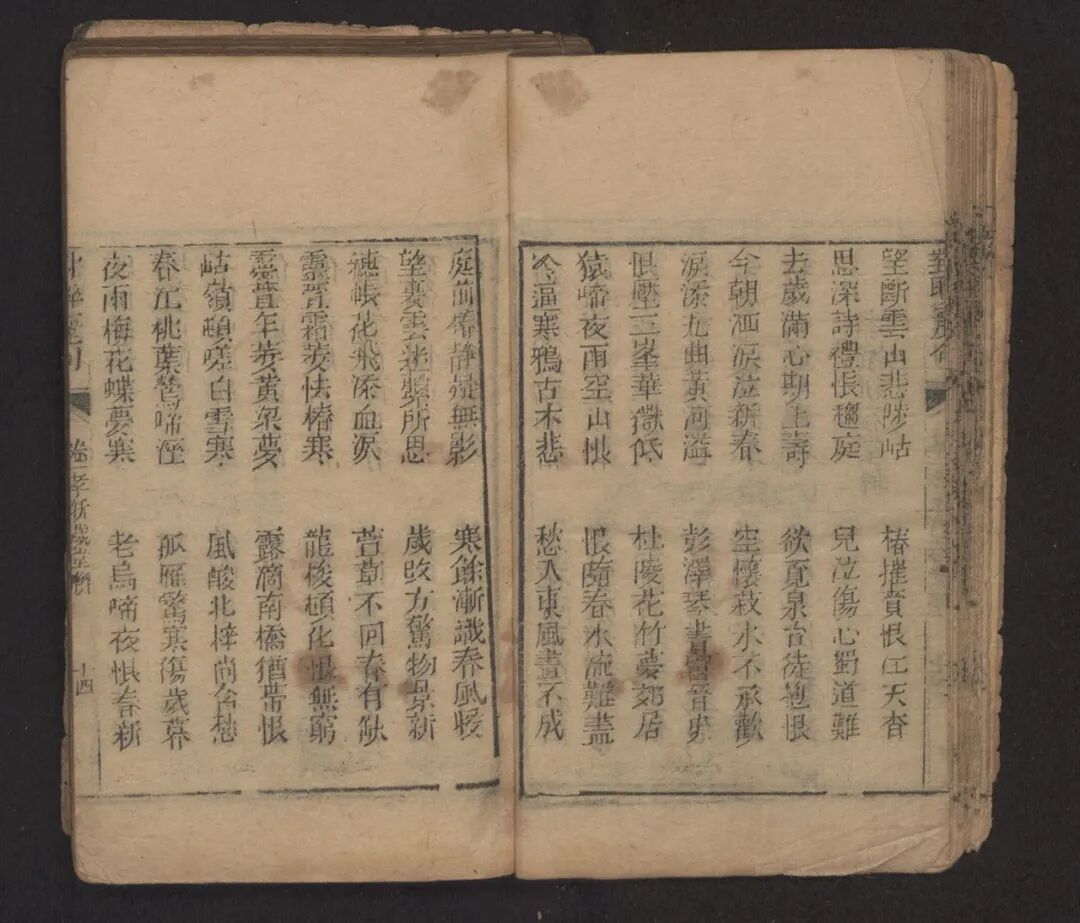 望斷雲山悲陟岵 椿摧賫恨江天杳
思深詩禮悵趨庭 兒泣傷心蜀道難
去歲滿心期上壽 欲覓泉台徒抱恨
今朝洒淚泣新春 空懷菽水不承歡
淚添九曲黃河溢 彭澤琴書
恨壓三峯華嶽低 杜陵花竹夢郊居
猿啼夜雨空山恨 恨隨春水流難盡
冷逼寒鴉古木悲 愁入東風畫不成
庭前椿靜疑無影 寒餘漸識春風暖
望裏雲迷繫所思 歲改方驚物景新
穗帳花飛添血淚 萱草不回春有缺
靈萱霜萎怯椿寒 龍梭頓化恨無窮
靈萱年萎黃粱夢 露滴南橋猶帶恨
岵嶺頻嗟白雪寒 風酸北梓尚含愁
春江桃葉鶯啼溼 孤雁驚寒傷歲暮
夜雨梅花蝶夢寒 老烏啼夜恨春新
十四